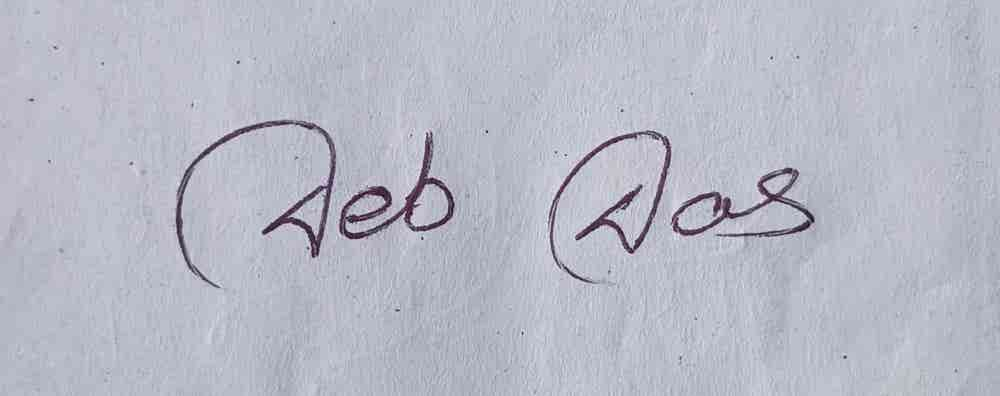 Deb Das